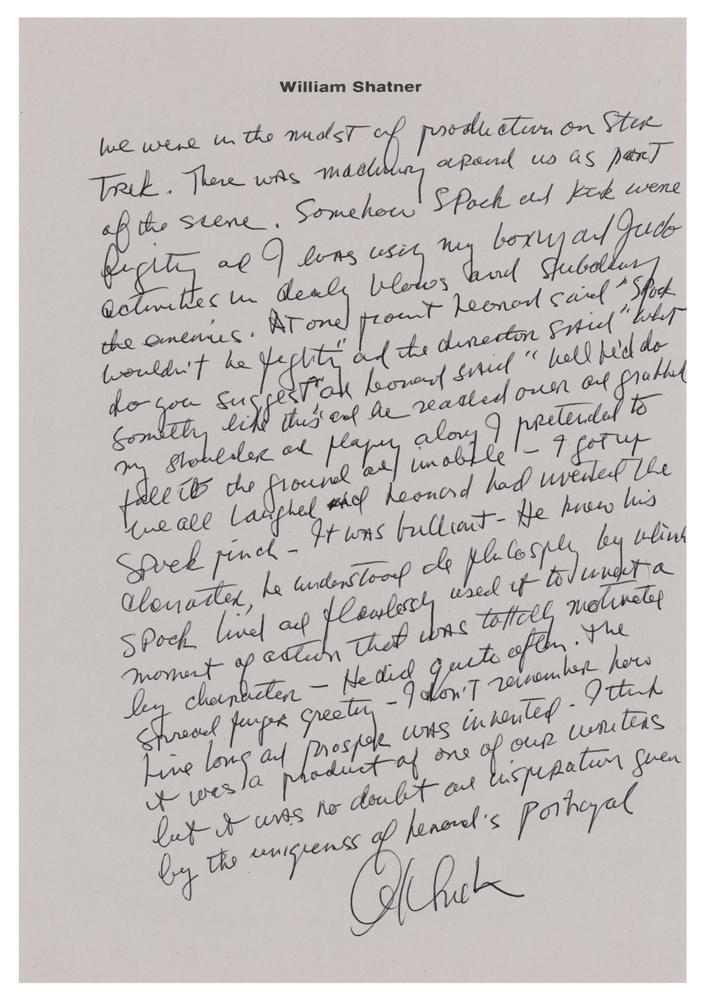 William Shatner
We were in the midst of production on Star
Trek. There was machinery around us as part
of the scene. Somehow Spock and Kirk were
fighting and I was using my boxing and Judo
activities in dealy blows and subduing
the enemies. At one point Leonard said "Spock
wouldn't be fighting" and the director said "what
do you suggest" and Leonard said "well he'd do
something like this" and he reached over and grabbed
my shoulder and playing along I pretended to
fall to the ground and imobile - I got up
we all laughed and Leonard had invented the
Spock pinch - It was brilliant - He knew his
character, he understood the philosophy by which
Spock lived and flawlessly used it to invent a
moment of action that was totally motivated
by character - He did quite often. The
spread finger greeting - I don't remember how
Live long and prosper was invented - I think
it was a product of one of our writers
but it was no doubt an inspiration given
by the uniqueness of Leonard's portrayal